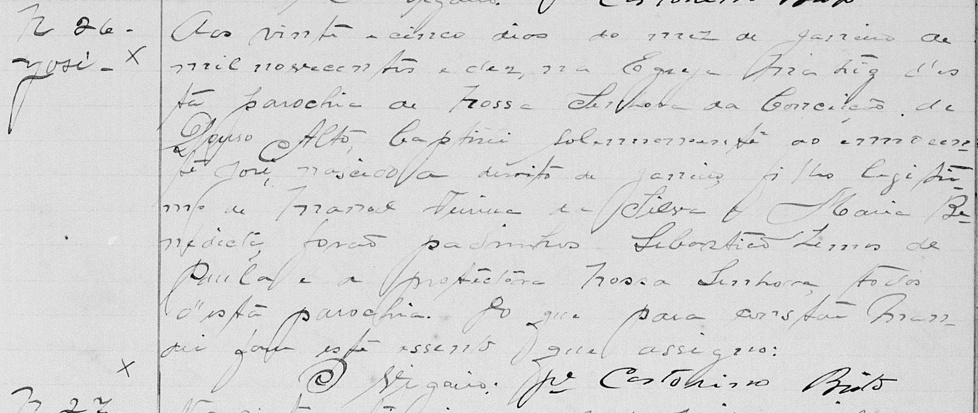 N 26-
José - x
Aos vinte e cinco dias do mez de Janeiro de
mil novecentos e dez, na Egreja Matriz d'es
ta parochia de Nossa Senhora da Conceição de
Pouso Alto, baptisei solemnemente ao innocen-
te José, nascido a dezoito de Janeiro, filho legiti-
mo de Manoel da Silva e Maria Be-
nedicta, forão padrinhos Sebastião Lemos de
Paula e a protectora Nossa Senhora, todos
d'esta parochia. Do que para constar man-
dei fazer este assento que assigno:
x
O Vigario: Pe Brito
N 27